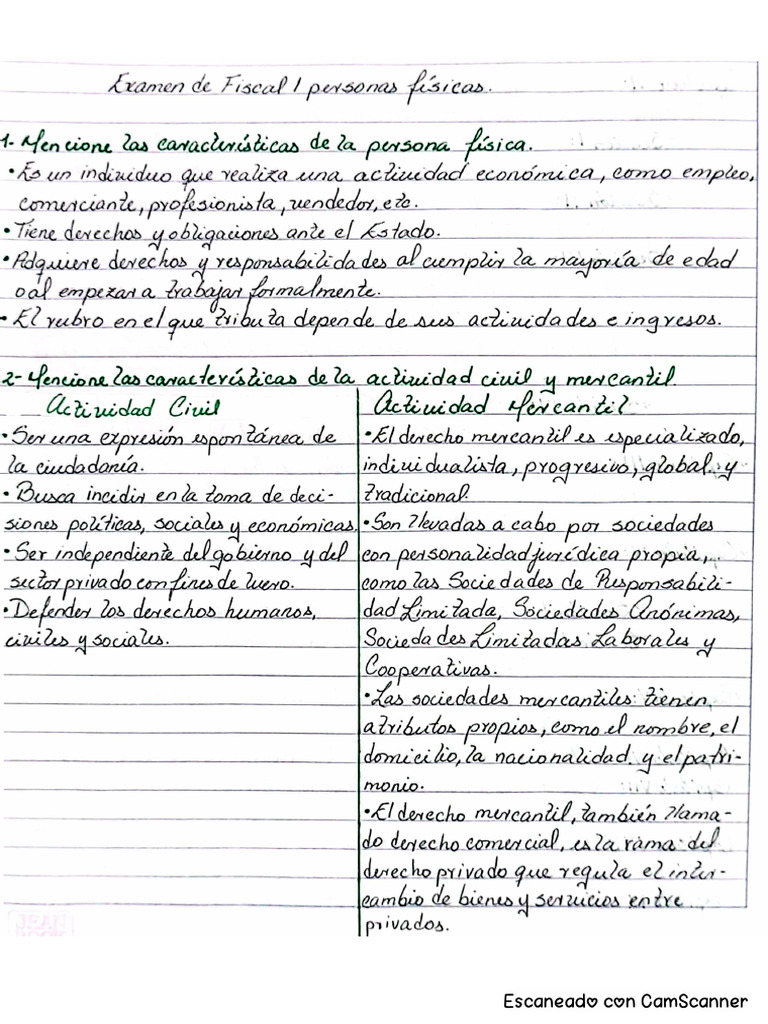 Examen de Fiscal 1 personas físicas.
1- Mencione las características de la persona física.
•Es un individuo que realiza una actividad económica, como empleo,
comerciante, profesionista, vendedor, etc.
•Tiene derechos y obligaciones ante el Estado.
•Adquiere derechos y responsabilidades al cumplir la mayoría de edad
o al empezar a trabajar formalmente.
•El rubro en el que tributa depende de sus actividades e ingresos.
2- Mencione las características de la actividad civil y mercantil.
Actividad Civil
•Ser una expresión espontánea de
la ciudadanía.
•Busca incidir en la toma de deci-
siones políticas, sociales y económicas.
•Ser independiente del gobierno y del
sector privado con fines de lucro.
•Defender los derechos humanos,
civiles y sociales.
Actividad Mercantil
•El derecho mercantil es especializado,
individualista, progresivo, global y
tradicional.
•Son llevadas a cabo por sociedades
con personalidad jurídica propia,
como las Sociedades de Responsabili-
dad Limitada, Sociedades Anónimas,
Sociedades Limitadas Laborales y
Cooperativas.
•Las sociedades mercantiles tienen
atributos propios, como el nombre, el
domicilio, la nacionalidad y el patri-
monio.
•El derecho mercantil, también llama-
do derecho comercial, es la rama del
derecho privado que regula el inter-
cambio de bienes y servicios entre
privados.
JEAN
BOOK
Escaneado con CamScanner